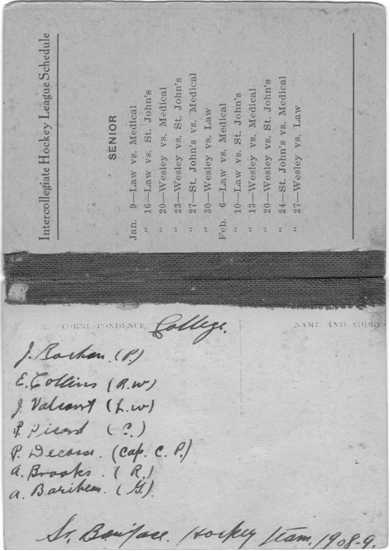 Intercollegiate Hockey League Schedule
SENIOR
Jan. 9—Law vs. Medical
" 16—Law vs. St. John's
" 20—Wesley vs. Medical
" 23—Wesley vs. St. John's
" 27—St. John's vs. Medical
" 30—Wesley vs. Law
Feb. 6—Law vs. Medical
" 10—Law vs. St. John's
" 13—Wesley vs. Medical
" 20—Wesley vs. St. John's
" 24—St. John's vs. Medical
" 27—Wesley vs. Law
CORRESPONDENCE College. NAME AND
J. (P.)
E. Collins (R.W)
J. Valcourt (L.W)
P. Picard (C.)
P. Decosse. (Cap. C.P.)
A. Brooks. (R.)
A. (G.)
St. Boniface. Hockey team. 1908-9.